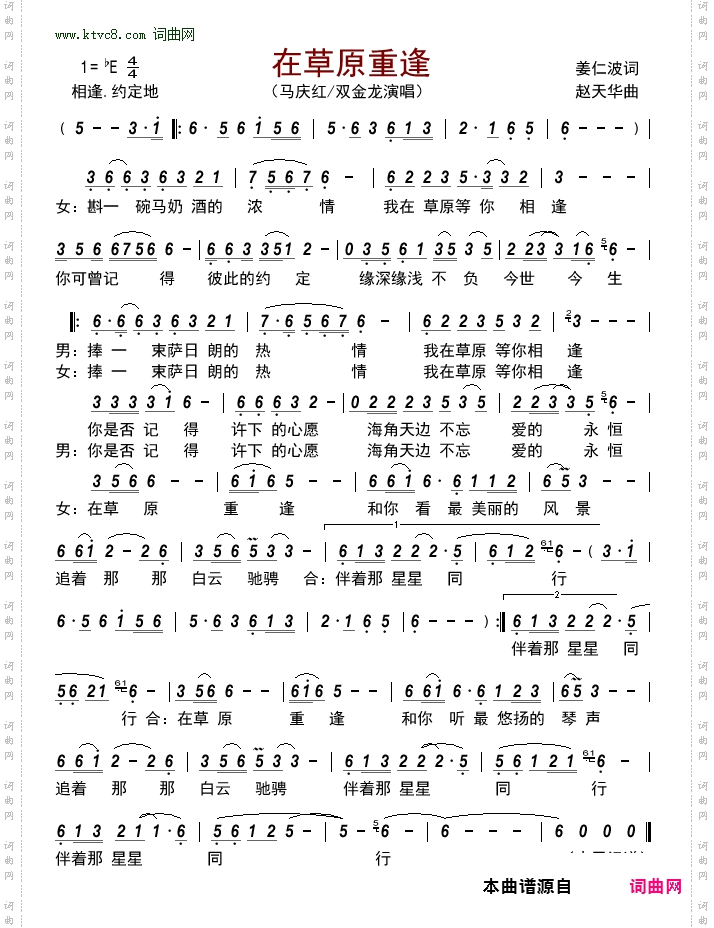 www.ktvc8.com 词曲网
1=♭E 4/4
在草原重逢
姜仁波词
相逢.约定地
（马庆红/双金龙演唱）
赵天华曲
( 5 - - 3·i ‖: 6· 5 6 i 5 6 | 5·6 3 6 1 3 | 2·1 6 5 | 6 - - - ) |
3 6 6 3 6 3 2 1 | 7 5 6 7 6 - | 6 2 2 3 5·3 3 2 | 3 - - - |
女：斟一 碗马奶 酒的 浓 情 我在 草原等 你 相 逢
3 5 6 6 7 5 6 6 - | 6 6 3 3 5 1 2 - | 0 3 5 6 1 3 5 3 5 | 2 2 3 3 1 6 5 6 - |
你可曾记 得 彼此的约 定 缘深缘浅 不 负 今世 今 生
‖: 6·6 6 3 6 3 2 1 | 7·6 5 6 7 6 - | 6 2 2 3 5 3 2 | 2 3 - - - |
男：捧 一 束萨日 朗的 热 情 我在草原 等你相 逢
女：捧 一 束萨日 朗的 热 情 我在草原 等你相 逢
3 3 3 3 1 6 - | 6 6 6 3 2 - | 0 2 2 2 3 5 3 5 | 2 2 3 3 5 5 6 - |
你是否 记 得 许下 的心愿 海角天边 不忘 爱的 永 恒
男：你是否 记 得 许下 的心愿 海角天边 不忘 爱的 永 恒
3 5 6 6 - - | 6 i 6 5 - - | 6 6 i 6·6 1 1 2 | 6 5 3 - - |
女：在草 原 重 逢 和你 看 最 美丽的 风 景
1
6 6 i 2 - 2 6 | 3 5 6 5 3 3 | 6 1 3 2 2 2·5 | 6 1 2 61 6 - ( 3·i |
追着 那 那 白云 驰骋 合：伴着那 星星 同 行
6·5 6 i 5 6 | 5·6 3 6 1 3 | 2·1 6 5 | 6 - - - ) :‖ 2 6 1 3 2 2 2·5 |
伴着那 星星 同
5 6 2 1 61 6 - | 3 5 6 6 - - | 6 i 6 5 - - | 6 6 i 6·6 1 2 3 | 6 5 3 - - |
行 合：在草 原 重 逢 和你 听 最 悠扬的 琴 声
6 6 i 2 - 2 6 | 3 5 6 5 3 3 | 6 1 3 2 2 2·5 | 5 6 1 2 1 61 6 - |
追着 那 那 白云 驰骋 伴着那 星星 同 行
6 1 3 2 1 1·6 | 5 6 1 2 5 - | 5 - 5 6 - | 6 - - - | 6 0 0 0 ‖
伴着那 星星 同 行
本曲谱源自 词曲网
词曲网